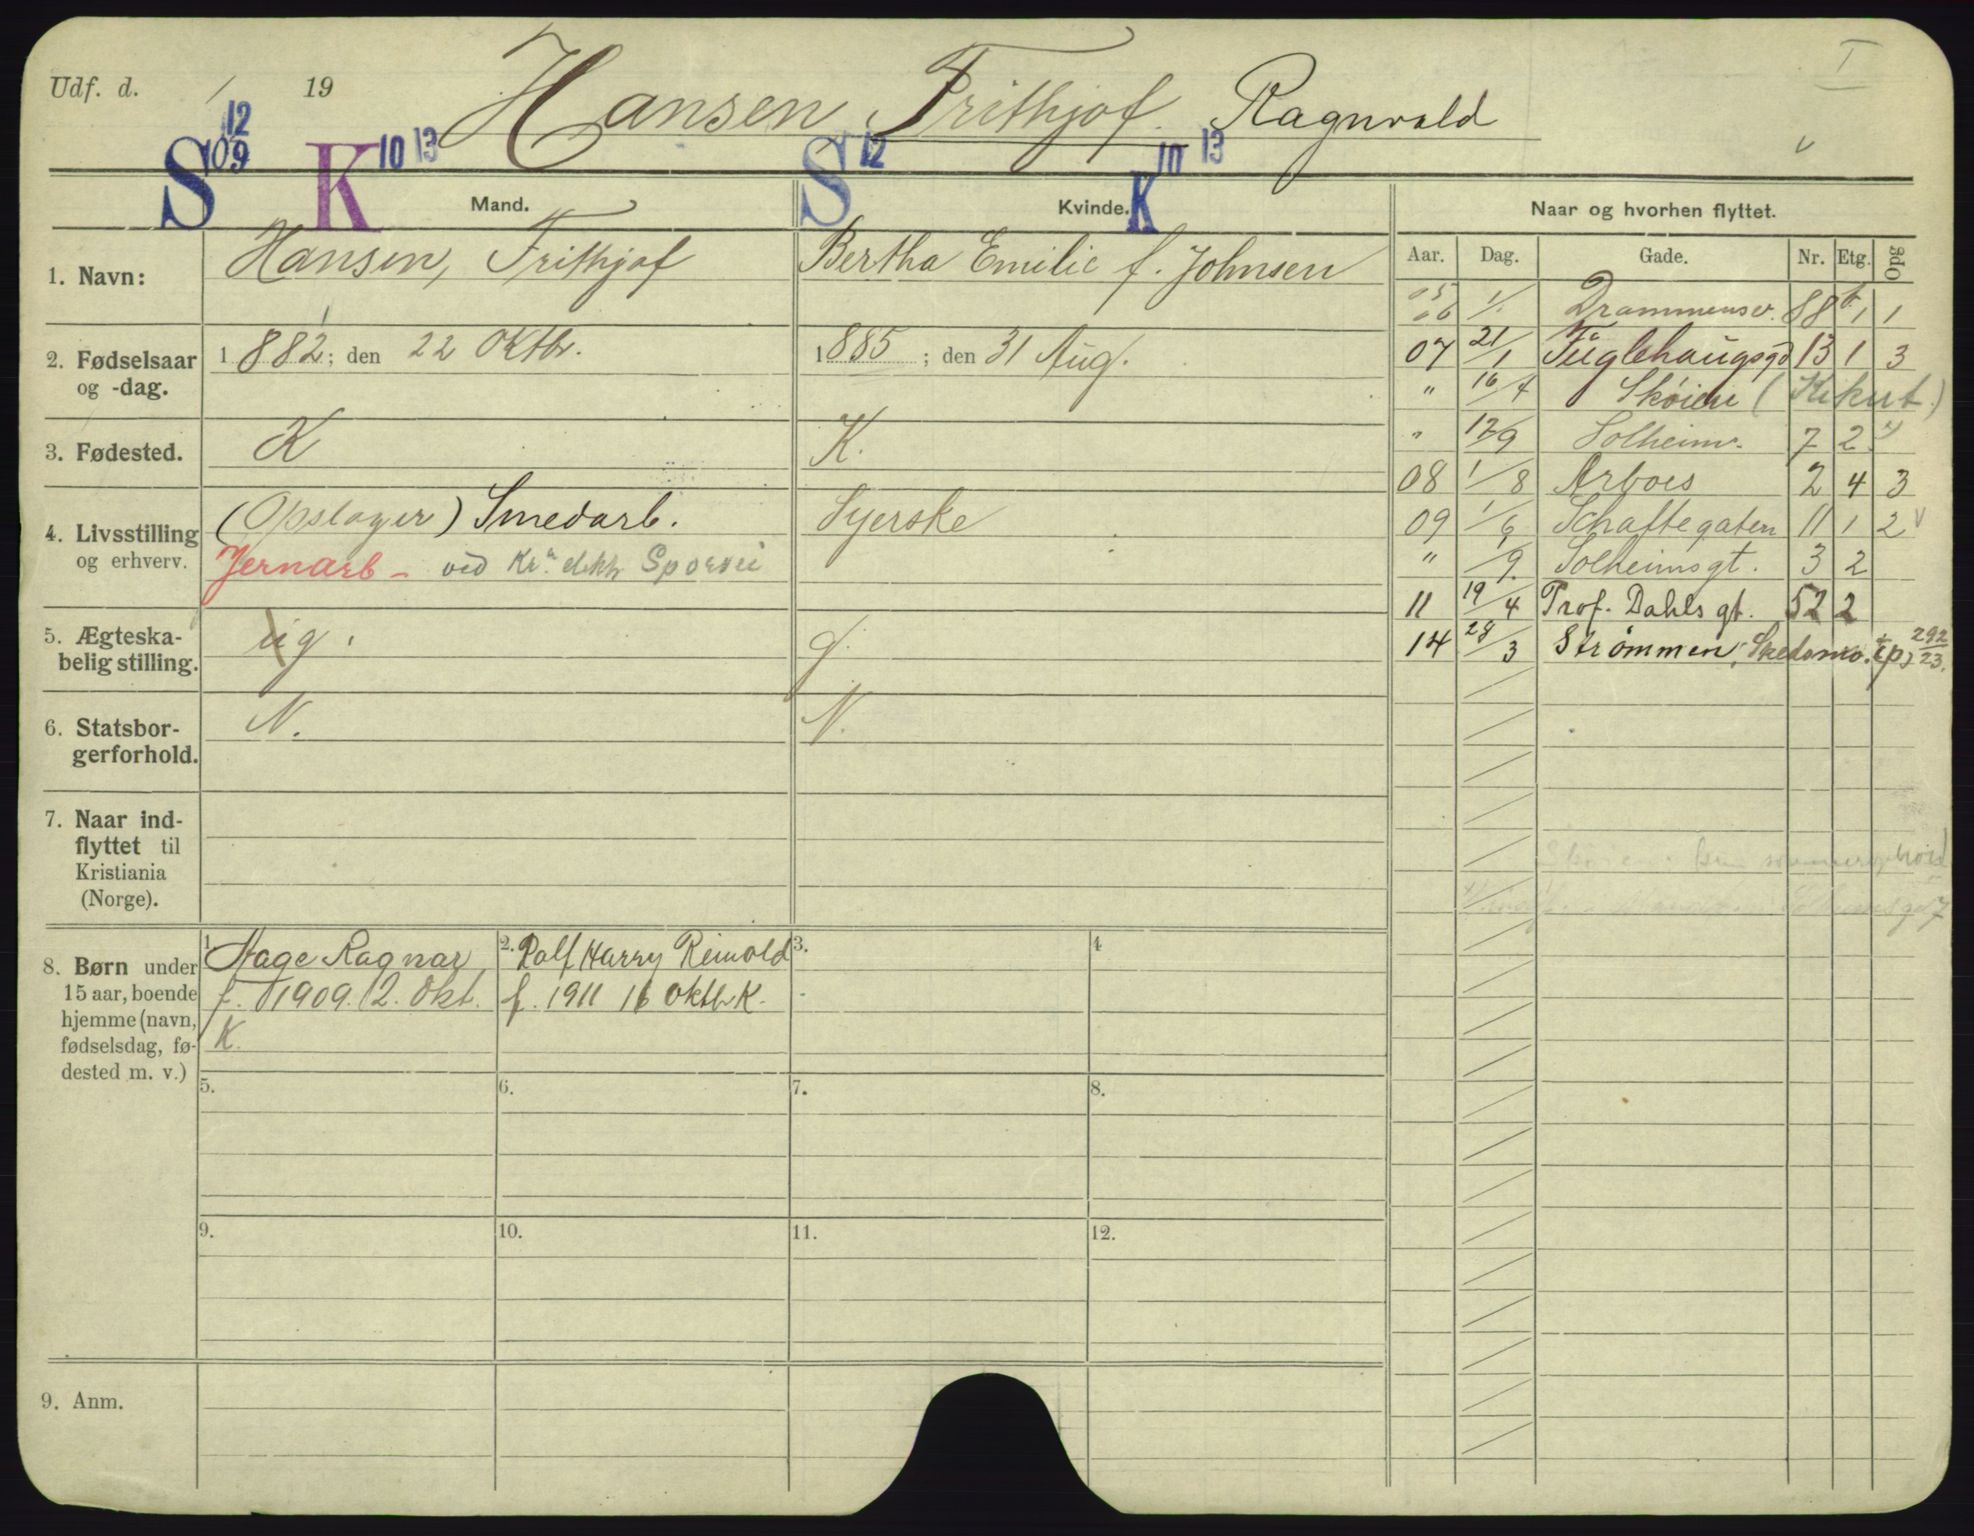 Udf. d. / 19
Hansen, Frithjof Ragnvald
I
S 12 09 K 10 13 S 12 K 10 13
Mand. Kvinde. Naar og hvorhen flyttet.
Aar. Dag. Gade. Nr. Etg. Opg
1. Navn: Hansen, Frithjof Bertha Emilie f. Johnsen
2. Fødselsaar og -dag. 1882; den 22 Oktbr. 1885; den 31 Aug.
3. Fødested. K K.
4. Livsstilling og erhverv. (Opslager) Smedarb. Syerske
Jernarb - ved Kr.a elektr Sporvei
5. Ægteska-
belig stilling. ug. g.
6. Statsbor-
gerforhold. N. N.
7. Naar ind-
flyttet til
Kristiania
(Norge).
8. Børn under
15 aar, boende
hjemme (navn,
fødselsdag, fø-
dested m. v.)
1. Aage Ragnar
f. 1909. 2. Okt.
K.
2. Rolf Harry Reinold
f. 1911 16 Oktb K.
3.
4
5.
6.
7.
8.
9.
10.
11.
12.
9. Anm.
06 1/ Drammensv. 88b 1 1
07 21/1 Fuglehaugsgd 13 1 3
" 16/4 Skøien (Kikut)
" 17/9 Solheimv. 7 2
08 1/8 Arboes 2 4 3
09 1/6 Schaftegaten 11 1 2
" /9 Solheimsgt. 3 2
11 19/4 Prof. Dahls gt. 52 2
14 28/3 Strømmen, Skedsmo. 292/23.
Skøien: kun sommerophold